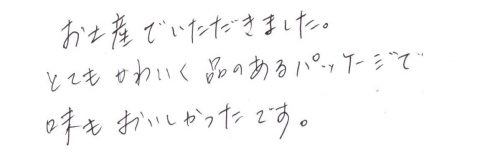 お土産でいただきました。
とてもかわいく品のあるパッケージで
味もおいしかったです。